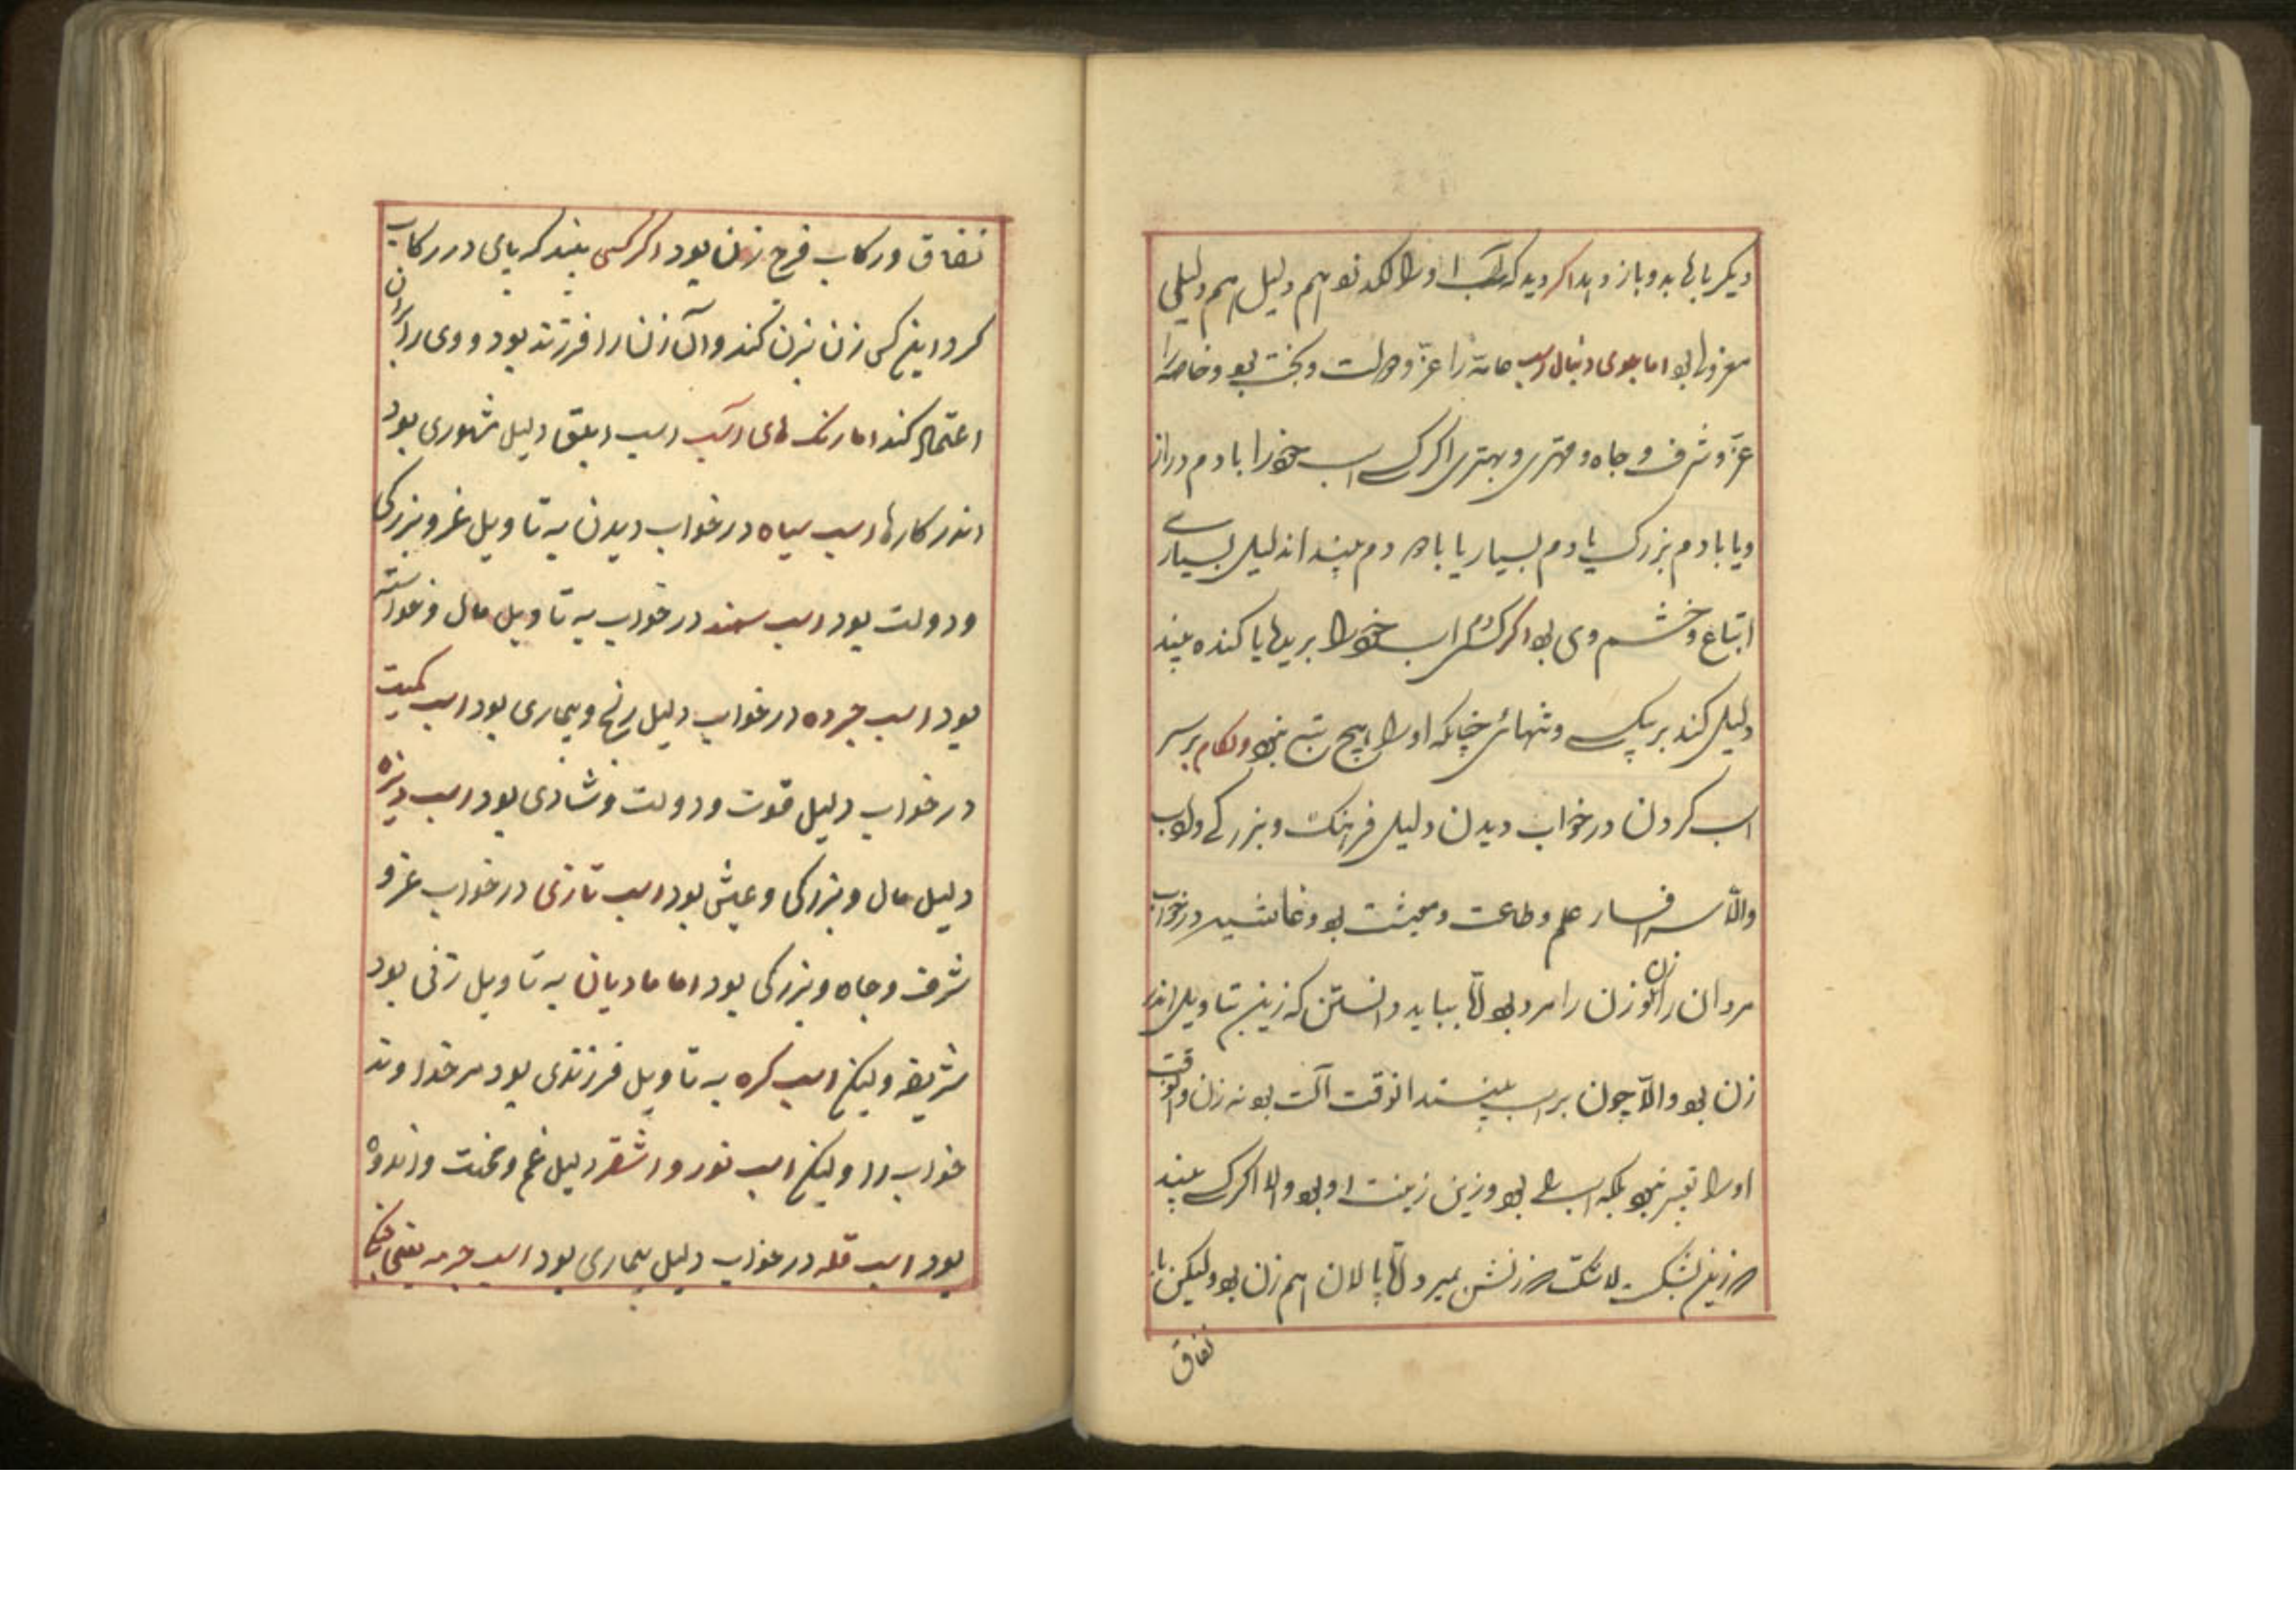 دیکر بارها بدو باز دهد اکر دید که اسب او را لکد زد هم دلیل هم دلیلی
معزولی بود اما موی دنبال اسب عامه را عز و دولت و بخت بود و خاصه را
عز و شرف و جاه و مهتری و بهتری اکر کسی اسب خود را با دم دراز
و یا با دم بزرک یا دم بسیار یا با ده دم بیند اندلیل بسیاری
اتباع و خشم وی بود اکر کسی دم اسب خود را بریده یا کنده بیند
دلیل کند بر یکسی و تنهائی چنانکه او را هیچ تبع نبود و لکام بر سر
اسب کردن در خواب دیدن دلیل فرهنک و بزرکی و ادب
والا سر افسار علم و طاعت و معیشت بود و غاشیه در خواب
مردان را زن بود و زن را مرد بود اما بباید دانستن که زین بتاویل اندر
زن بود والا چون بر اسب بینند انوقت آلت بود نه زن و انوقت
او را تعبیر نبود بلکه اسب بود و زین زینت او بود والا اکر کسی بیند
که زین بشکست لاشک که زنش بمیرد اما پالان هم زن بود ولیکن با
نفاق
نفاق و رکاب فرج زن بود اکر کسی بیند که پای در رکاب
کرد اینکس زن بزن کند و آن زن را فرزند بود و وی را بران
اعتماد کند اما رنک های اسب اسب ابلق دلیل شهوری بود
اندر کارها اسب سیاه در خواب دیدن به تاویل عز و بزرکی
و دولت بود اسب سمند در خواب به تاویل مال و خواسته
بود اسب جرده در خواب دلیل رنج و بیماری بود اسب کمیت
در خواب دلیل قوت و دولت و شادی بود اسب دیزه
دلیل مال و بزرکی و عیش بود اسب تازی در خواب عز و
شرف و جاه و بزرکی بود اما مادیان به تاویل زنی بود
شریفه ولیکن اسب کره به تاویل فرزندی بود مر خداوند
خواب را ولیکن اسب نور و اشقر دلیل غم و محنت و اندوه
بود اسب قله در خواب دلیل بیماری بود اسب جرمه یعنی خنک